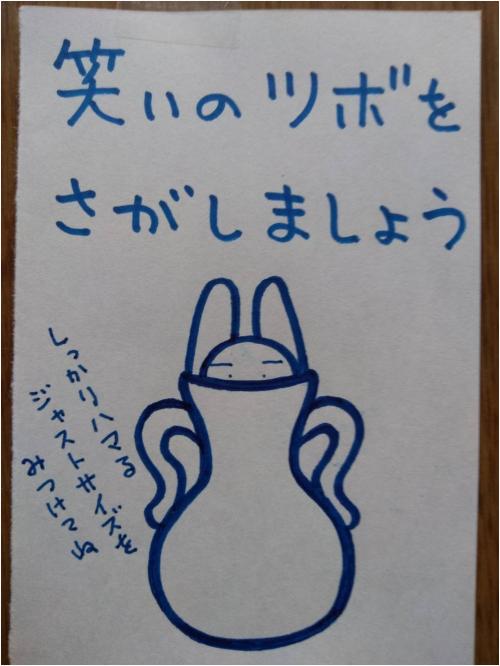 笑いのツボを
さがしましょう
しっかりハマる
ジャストサイズを
みつけてね